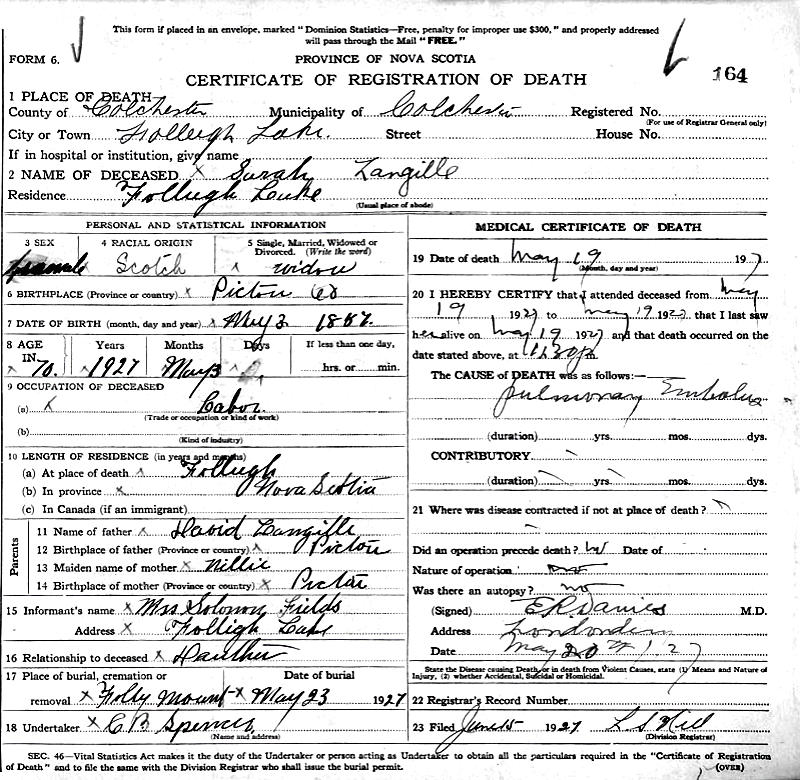 This form if placed in an envelope, marked "Dominion Statistics—Free, penalty for improper use $300," and properly addressed
will pass through the Mail "FREE."
FORM 6.
PROVINCE OF NOVA SCOTIA
164
CERTIFICATE OF REGISTRATION OF DEATH
1 PLACE OF DEATH
County of Colchester Municipality of Colchester Registered No.
(For use of Registrar General only)
City or Town Folleigh Lake. Street House No.
If in hospital or institution, give name
2 NAME OF DECEASED x Sarah Langille
Residence Folleigh Lake
(Usual place of abode)
PERSONAL AND STATISTICAL INFORMATION
3 SEX 4 RACIAL ORIGIN 5 Single, Married, Widowed or
Divorced. (Write the word)
female x Scotch x widow
6 BIRTHPLACE (Province or country) x Pictou Co
7 DATE OF BIRTH (month, day and year) x May 3 1857.
8 AGE Years Months Days If less than one day,
IN 70. x 1927 May 3 hrs. or min.
9 OCCUPATION OF DECEASED
(a) x Labor.
(Trade or occupation or kind of work)
(b)
(Kind of industry)
10 LENGTH OF RESIDENCE (in years and months)
(a) At place of death x Folleigh
(b) In province x Nova Scotia
(c) In Canada (if an immigrant)
Parents
11 Name of father x David Langille
12 Birthplace of father (Province or country) x Pictou
13 Maiden name of mother x Nillie
14 Birthplace of mother (Province or country) x Pictou
15 Informant's name x Mrs Solomon Fields
Address x Folligh Lake
16 Relationship to deceased x Daughter
17 Place of burial, cremation or Date of burial
removal x Folly Mount x May 23 1927
18 Undertaker x C B Spencer
(Name and address)
MEDICAL CERTIFICATE OF DEATH
19 Date of death May 19 1927
(Month, day and year)
20 I HEREBY CERTIFY that I attended deceased from May
19 1927 to May 19 1927 that I last saw
her alive on May 19 1927 and that death occurred on the
date stated above, at 11.30 p
The CAUSE of DEATH was as follows:—
Pulmonary Embolus
(duration) yrs. mos. dys.
CONTRIBUTORY.
(duration) yrs. mos. dys.
21 Where was disease contracted if not at place of death?
Did an operation precede death? no Date of
Nature of operation
Was there an autopsy? no
(Signed) E R Davies M.D.
Address Londonderry
Date May 20th 1927
State the Disease causing Death, or in death from Violent Causes, state (1) Means and Nature of
Injury, (2) whether Accidental, Suicidal or Homicidal.
22 Registrar's Record Number
23 Filed June 15 1927 L S Hill
(Division Registrar)
SEC. 46—Vital Statistics Act makes it the duty of the Undertaker or person acting as Undertaker to obtain all the particulars required in the "Certificate of Registration
of Death" and to file the same with the Division Registrar who shall issue the burial permit. (OVER)